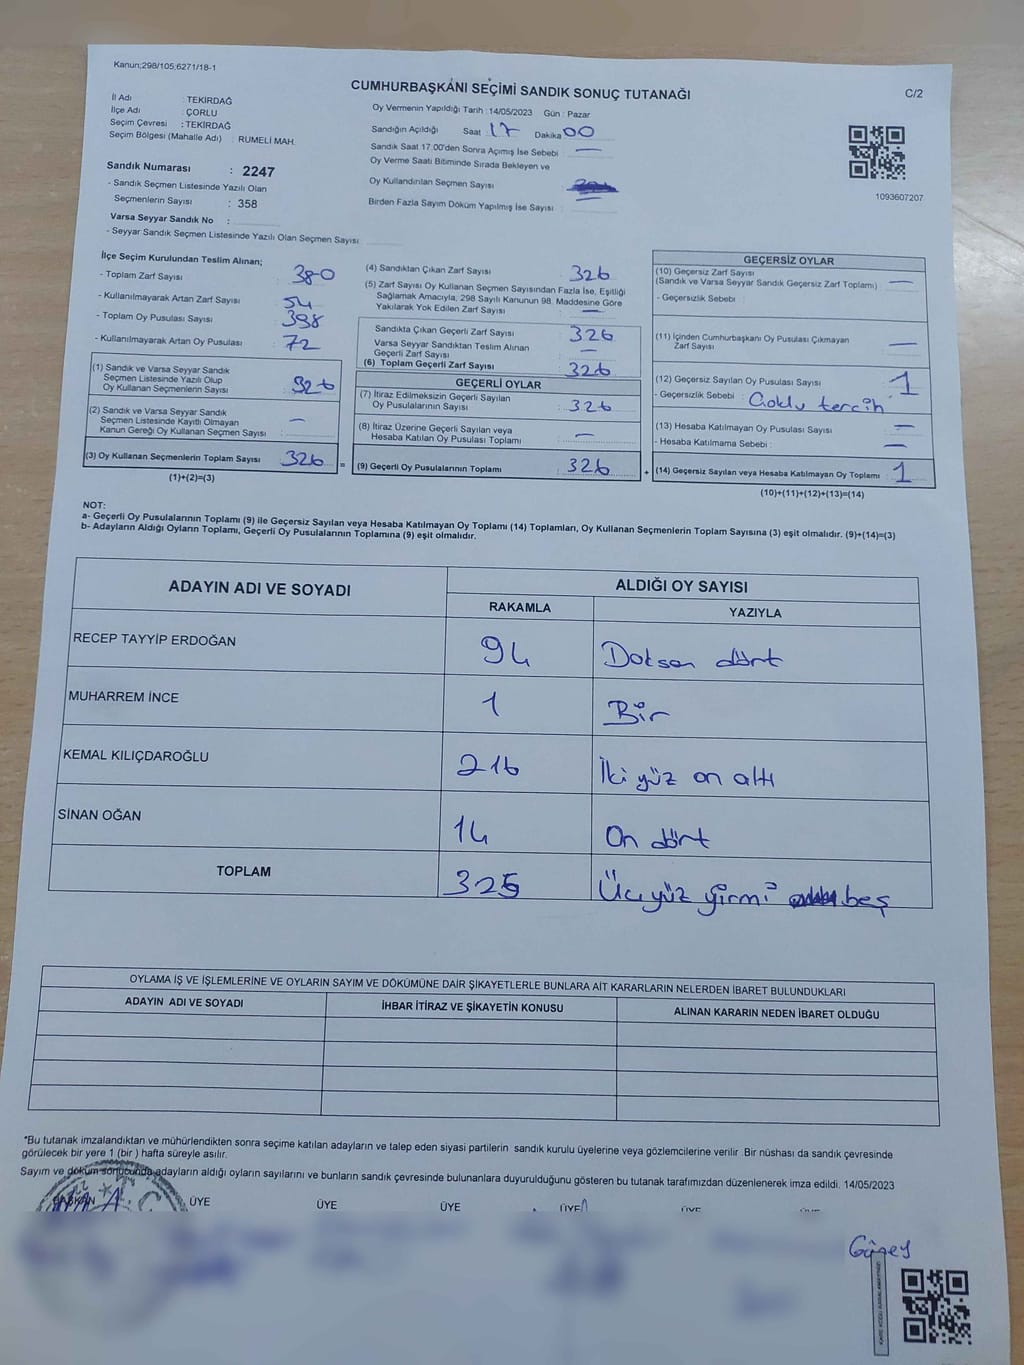 Kanun;298/105;6271/18-1
CUMHURBAŞKANI SEÇİMİ SANDIK SONUÇ TUTANAĞI
C/2
İl Adı : TEKİRDAĞ
İlçe Adı : ÇORLU
Seçim Çevresi : TEKİRDAĞ
Seçim Bölgesi (Mahalle Adı) : RUMELİ MAH.
Sandık Numarası : 2247
- Sandık Seçmen Listesinde Yazılı Olan
Seçmenlerin Sayısı : 358
Varsa Seyyar Sandık No :
- Seyyar Sandık Seçmen Listesinde Yazılı Olan Seçmen Sayısı
Oy Vermenin Yapıldığı Tarih : 14/05/2023 Gün : Pazar
Sandığın Açıldığı Saat 17 Dakika 00
Sandık Saat 17.00'den Sonra Açımış İse Sebebi : —
Oy Verme Saati Bitiminde Sırada Bekleyen ve
Oy Kullandırılan Seçmen Sayısı
Birden Fazla Sayım Döküm Yapılmış İse Sayısı :
1093607207
İlçe Seçim Kurulundan Teslim Alınan;
- Toplam Zarf Sayısı : 380
- Kullanılmayarak Artan Zarf Sayısı : 54
- Toplam Oy Pusulası Sayısı : 398
- Kullanılmayarak Artan Oy Pusulası : 72
(1) Sandık ve Varsa Seyyar Sandık
Seçmen Listesinde Yazılı Olup
Oy Kullanan Seçmenlerin Sayısı : 326
(2) Sandık ve Varsa Seyyar Sandık
Seçmen Listesinde Kayıtlı Olmayan
Kanun Gereği Oy Kullanan Seçmen Sayısı : —
(3) Oy Kullanan Seçmenlerin Toplam Sayısı 326
(1)+(2)=(3)
=
(4) Sandıktan Çıkan Zarf Sayısı : 326
(5) Zarf Sayısı Oy Kullanan Seçmen Sayısından Fazla İse, Eşitliği
Sağlamak Amacıyla, 298 Sayılı Kanunun 98. Maddesine Göre
Yakılarak Yok Edilen Zarf Sayısı : —
Sandıkta Çıkan Geçerli Zarf Sayısı : 326
Varsa Seyyar Sandıktan Teslim Alınan
Geçerli Zarf Sayısı : —
(6) Toplam Geçerli Zarf Sayısı : 326
GEÇERLİ OYLAR
(7) İtiraz Edilmeksizin Geçerli Sayılan
Oy Pusulalarının Sayısı : 326
(8) İtiraz Üzerine Geçerli Sayılan veya
Hesaba Katılan Oy Pusulası Toplamı : —
(9) Geçerli Oy Pusulalarının Toplamı : 326
+
GEÇERSİZ OYLAR
(10) Geçersiz Zarf Sayısı
(Sandık ve Varsa Seyyar Sandık Geçersiz Zarf Toplamı) : —
- Geçersizlik Sebebi :
(11) İçinden Cumhurbaşkanı Oy Pusulası Çıkmayan
Zarf Sayısı : —
(12) Geçersiz Sayılan Oy Pusulası Sayısı : 1
- Geçersizlik Sebebi : Çoklu tercih
(13) Hesaba Katılmayan Oy Pusulası Sayısı : —
- Hesaba Katılmama Sebebi : —
(14) Geçersiz Sayılan veya Hesaba Katılmayan Oy Toplamı : 1
(10)+(11)+(12)+(13)=(14)
NOT:
a- Geçerli Oy Pusulalarının Toplamı (9) ile Geçersiz Sayılan veya Hesaba Katılmayan Oy Toplamı (14) Toplamları, Oy Kullanan Seçmenlerin Toplam Sayısına (3) eşit olmalıdır. (9)+(14)=(3)
b- Adayların Aldığı Oyların Toplamı, Geçerli Oy Pusulalarının Toplamına (9) eşit olmalıdır.
ADAYIN ADI VE SOYADI ALDIĞI OY SAYISI
RAKAMLA YAZIYLA
RECEP TAYYİP ERDOĞAN 94 Doksan dört
MUHARREM İNCE 1 Bir
KEMAL KILIÇDAROĞLU 216 İki yüz on altı
SİNAN OĞAN 14 On dört
TOPLAM 325 Üç yüz yirmi beş
OYLAMA İŞ VE İŞLEMLERİNE VE OYLARIN SAYIM VE DÖKÜMÜNE DAİR ŞİKAYETLERLE BUNLARA AİT KARARLARIN NELERDEN İBARET BULUNDUKLARI
ADAYIN ADI VE SOYADI İHBAR İTİRAZ VE ŞİKAYETİN KONUSU ALINAN KARARIN NEDEN İBARET OLDUĞU
*Bu tutanak imzalandıktan ve mühürlendikten sonra seçime katılan adayların ve talep eden siyasi partilerin sandık kurulu üyelerine veya gözlemcilerine verilir. Bir nüshası da sandık çevresinde
görülecek bir yere 1 (bir ) hafta süreyle asılır.
Sayım ve döküm sonucunda adayların aldığı oyların sayılarını ve bunların sandık çevresinde bulunanlara duyurulduğunu gösteren bu tutanak tarafımızdan düzenlenerek imza edildi. 14/05/2023
BAŞKAN ÜYE ÜYE ÜYE ÜYE ÜYE
Güney